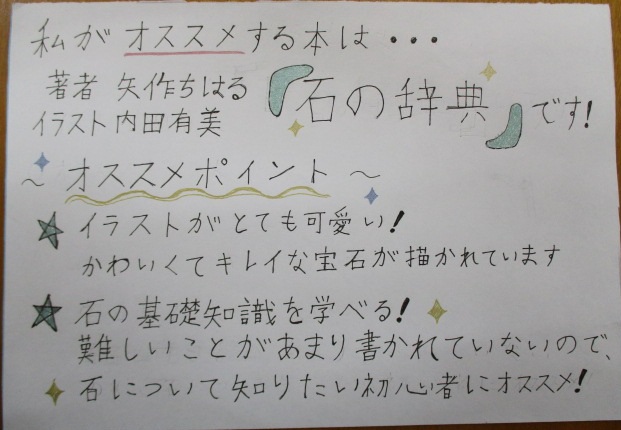 私がオススメする本は・・・
著者 矢作ちはる
イラスト内田有美
『石の辞典』です!
~ オススメポイント ~
☆ イラストがとても可愛い!
かわいくてキレイな宝石が描かれています
☆ 石の基礎知識を学べる!
難しいことがあまり書かれていないので、
石について知りたい初心者にオススメ!